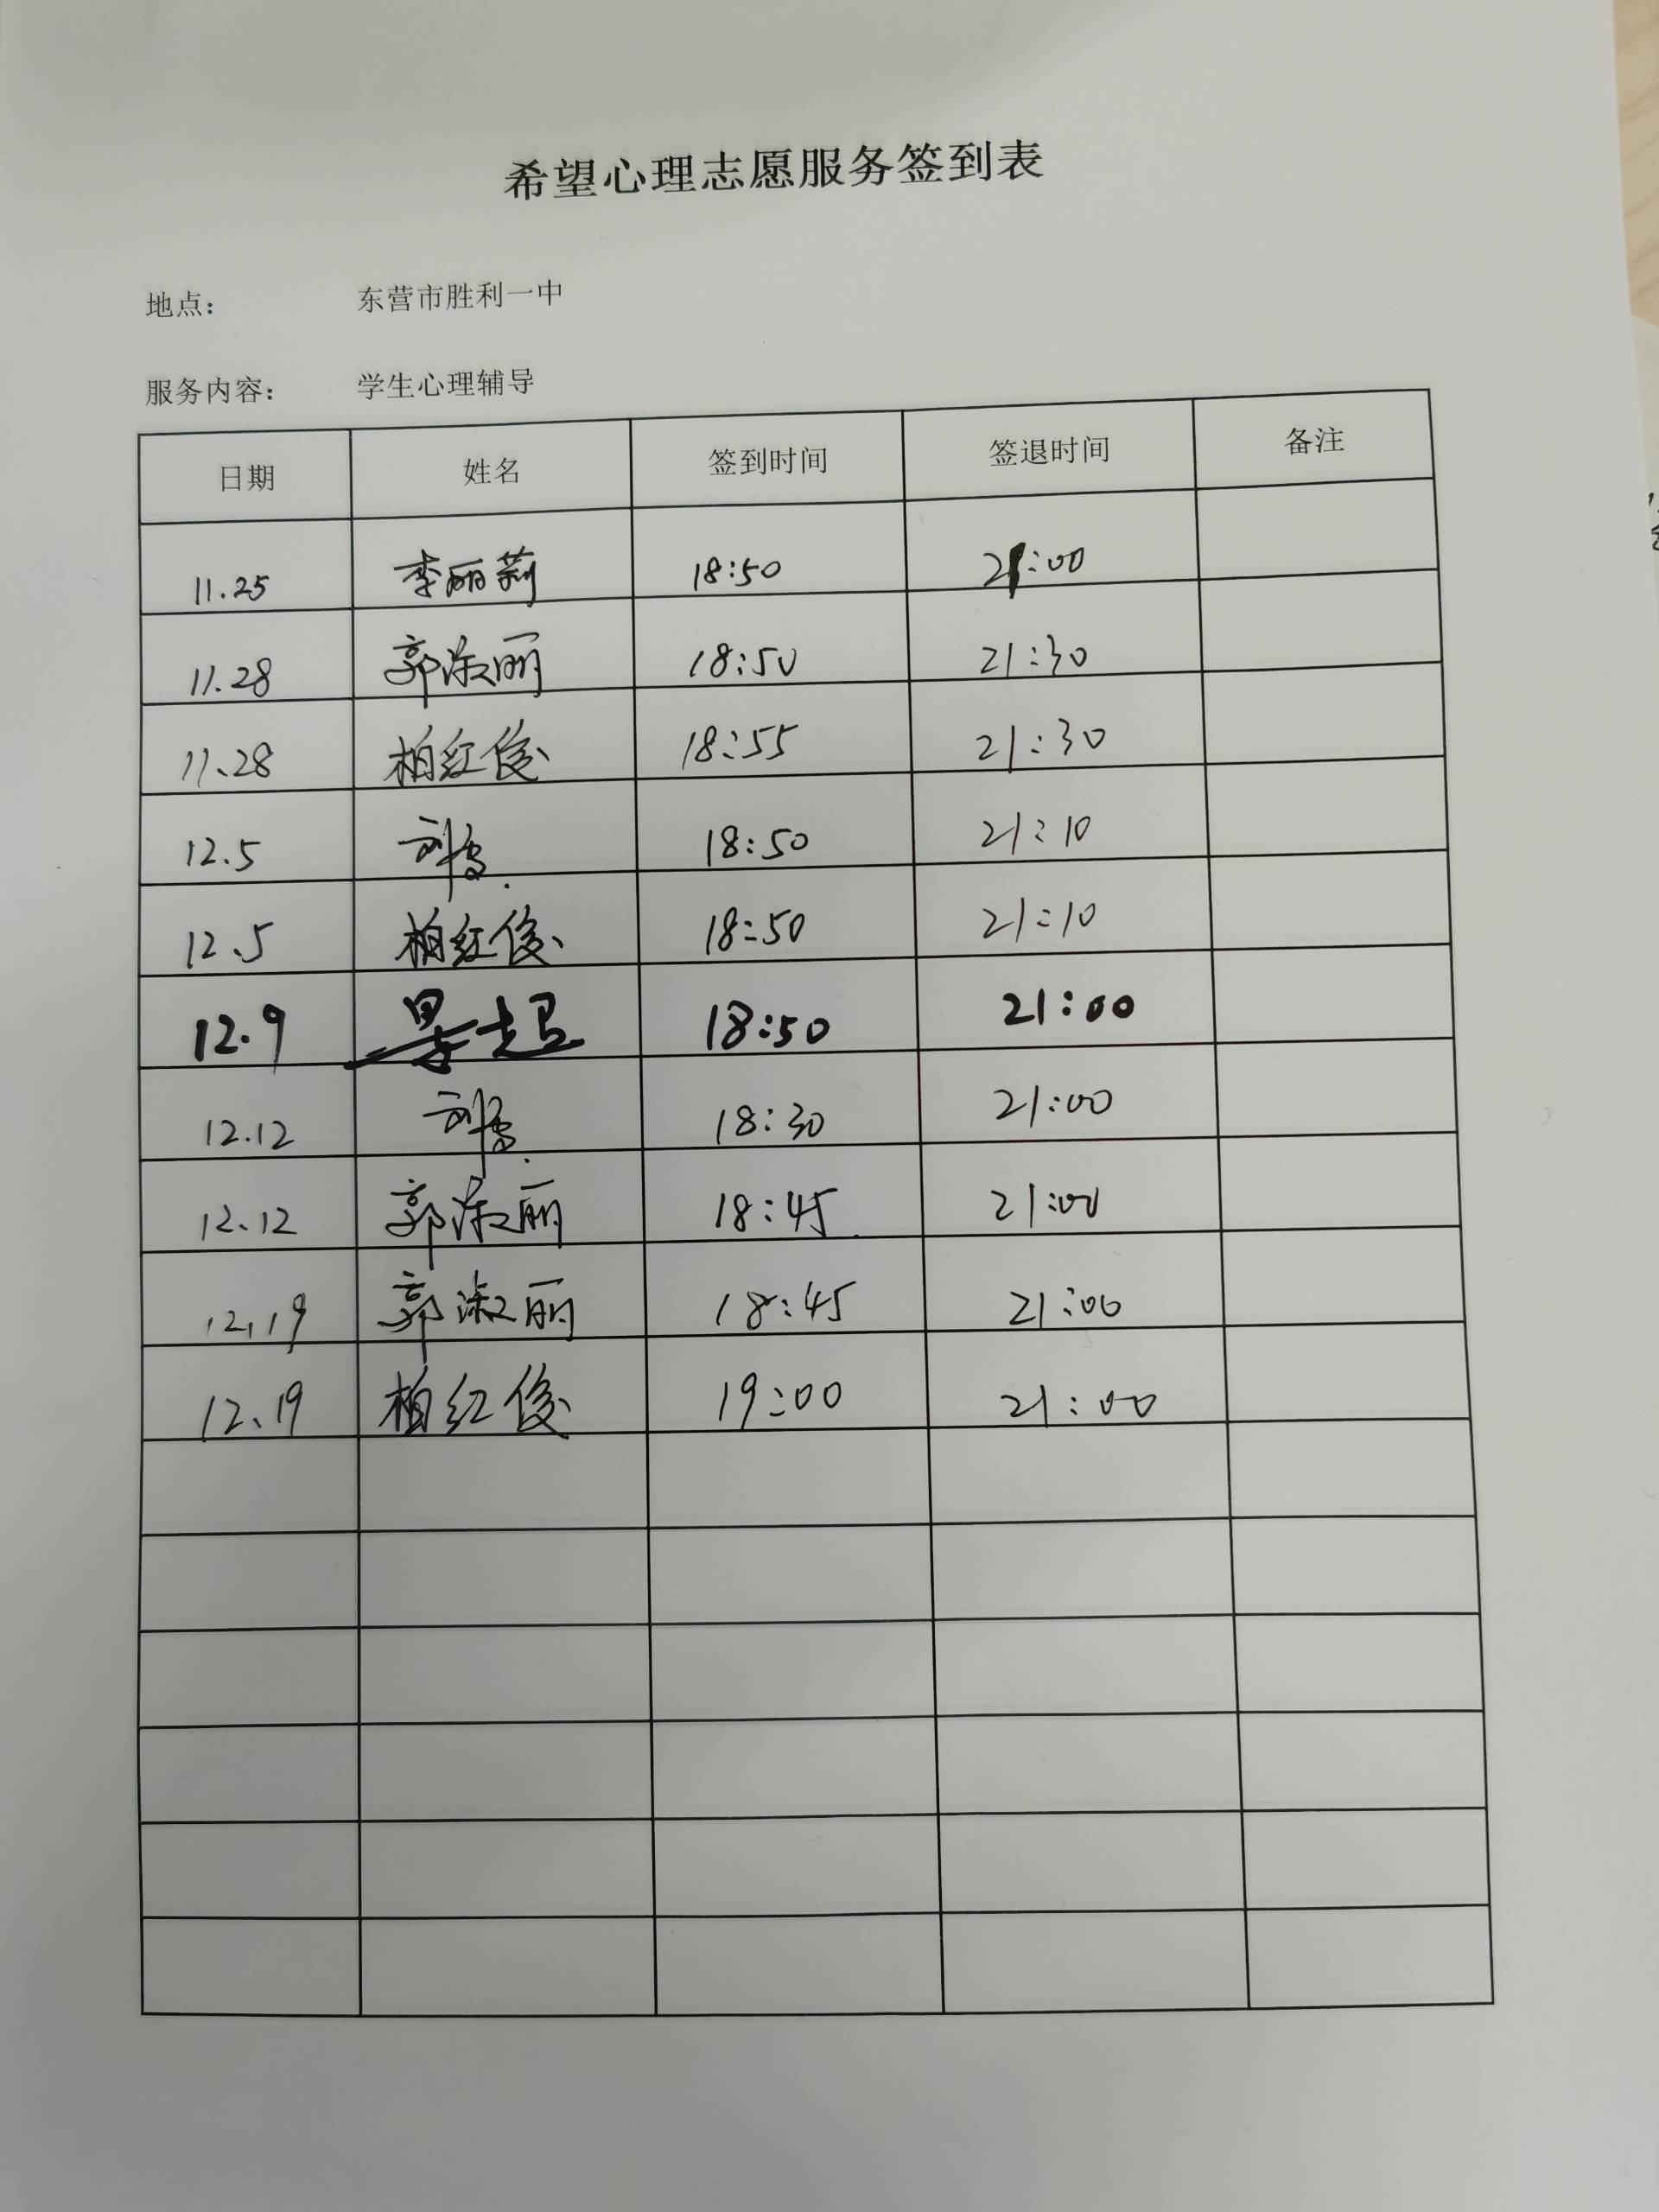 希望心理志愿服务签到表
地点： 东营市胜利一中
服务内容： 学生心理辅导
日期 姓名 签到时间 签退时间 备注
11.25 李丽莉 18:50 21:00
11.28 郭淑丽 18:50 21:30
11.28 柏红俊 18:55 21:30
12.5 18:50 21:10
12.5 柏红俊 18:50 21:10
12.9 18:50 21:00
12.12 18:30 21:00
12.12 郭淑丽 18:45 21:00
12.19 郭淑丽 18:45 21:00
12.19 柏红俊 19:00 21:00